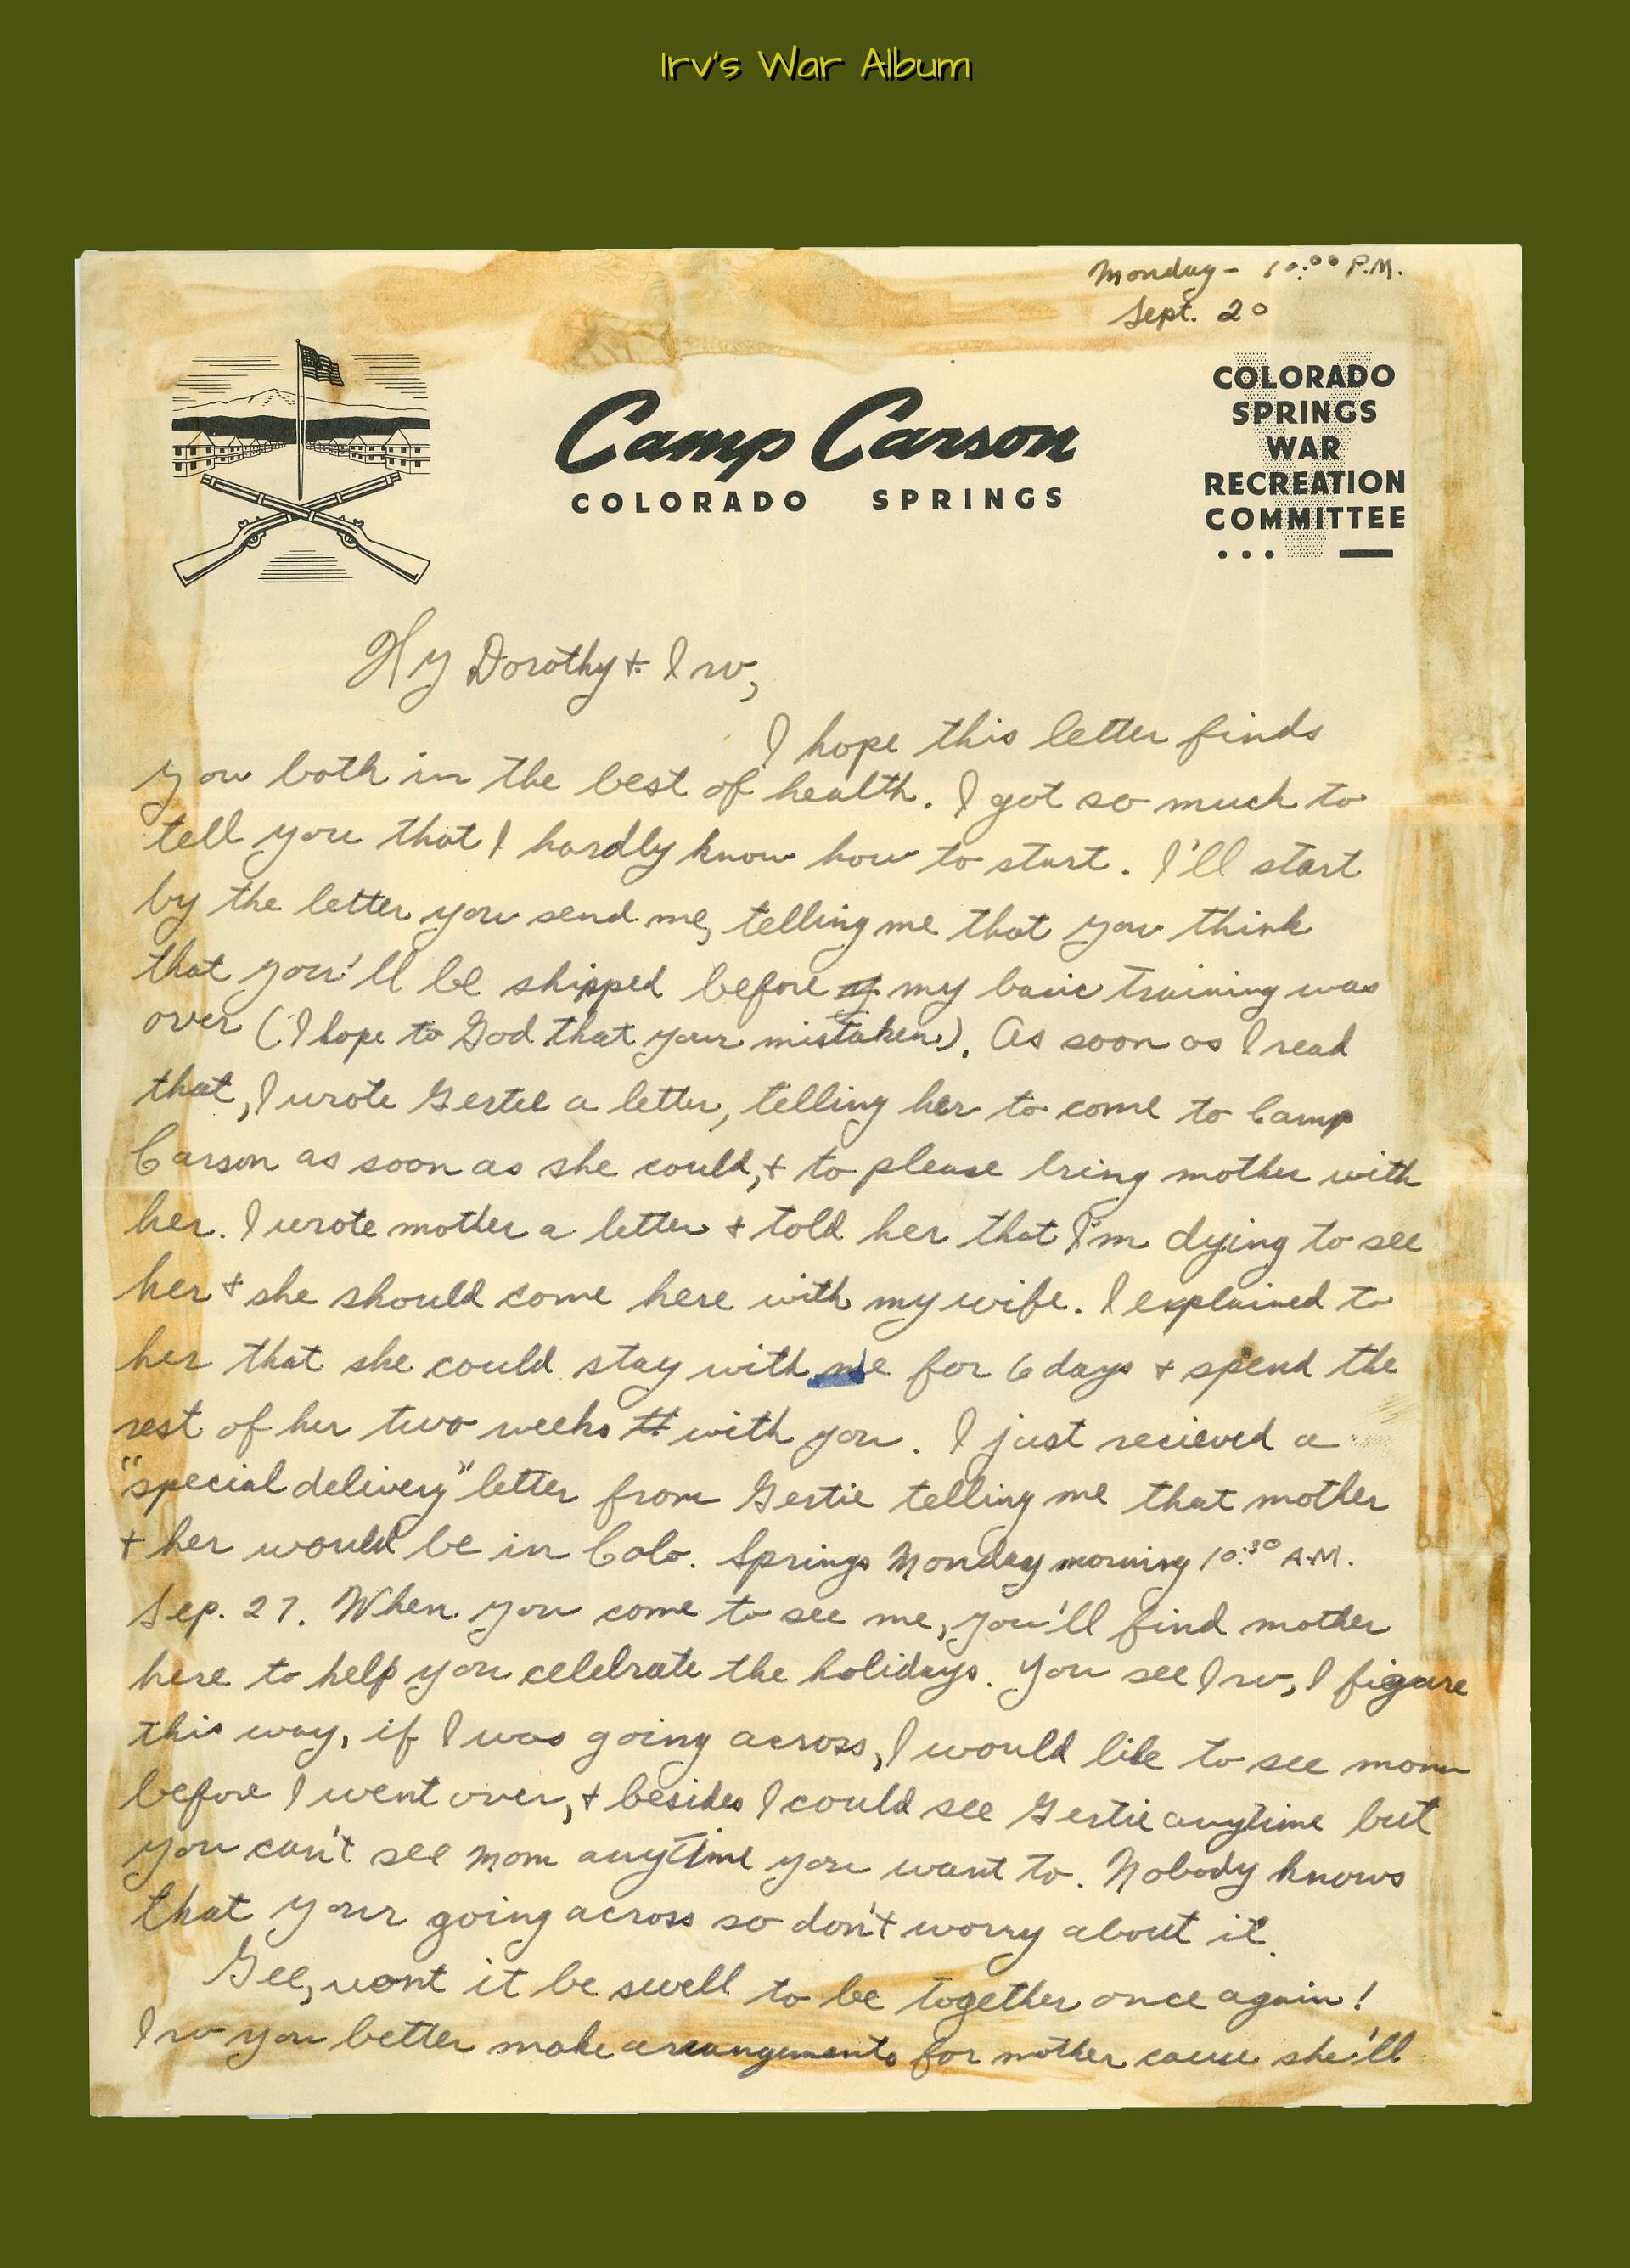 Irv's War Album
Monday - 10:00 P.M.
Sept. 20
Camp Carson
COLORADO SPRINGS
COLORADO
SPRINGS
WAR
RECREATION
COMMITTEE
Hy Dorothy & Irv,
I hope this letter finds
you both in the best of health. I got so much to
tell you that I hardly know how to start. I'll start
by the letter you send me, telling me that you think
that you'll be shipped before my basic training was
over (I hope to God that your mistaken). As soon as I read
that, I wrote Gertie a letter, telling her to come to Camp
Carson as soon as she could, & to please bring mother with
her. I wrote mother a letter & told her that I'm dying to see
her & she should come here with my wife. I explained to
her that she could stay with me for 6 days & spend the
rest of her two weeks with you. I just recieved a
"special delivery" letter from Gertie telling me that mother
& her would be in Colo. Springs Monday morning 10:30 A.M.
Sep. 27. When you come to see me, you'll find mother
here to help you celebrate the holidays. You see Irv, I figure
this way, if I was going across, I would like to see mom
before I went over, & besides I could see Gertie anytime but
you can't see mom anytime you want to. Nobody knows
that your going across so don't worry about it.
Gee, wont it be swell to be together once again!
Irv you better make arrangements for mother cause she'll